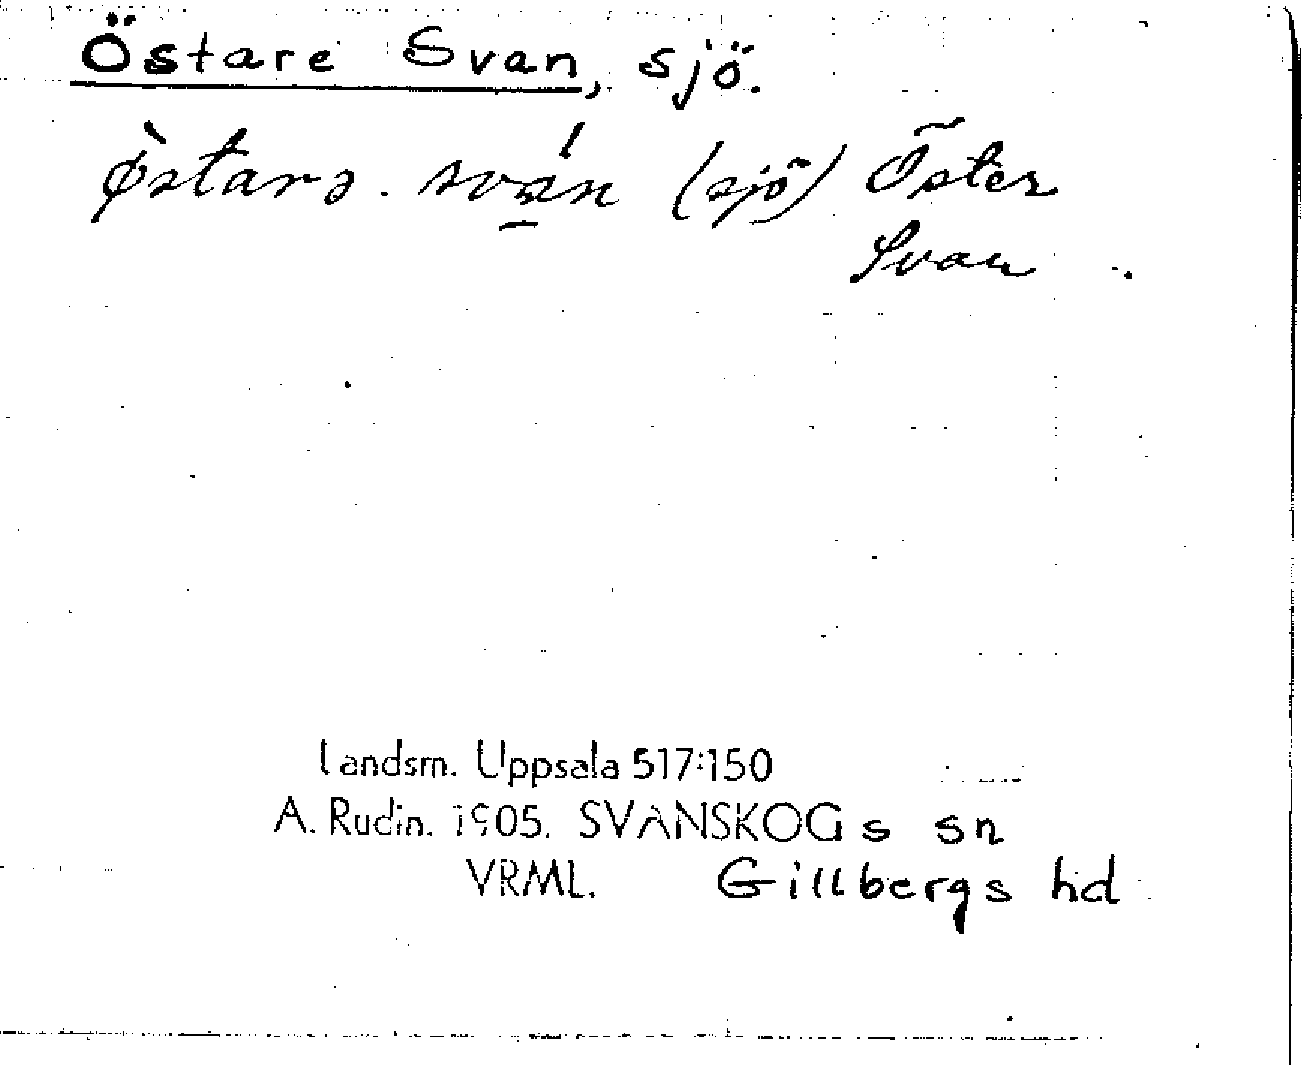 Östare Svan, sjö.
østarə. svan (sjö) Öster
Svan
Landsm. Uppsala 517:150
A. Rudin. 1905. SVANSKOGs sn
VRML. Gillbergs hd